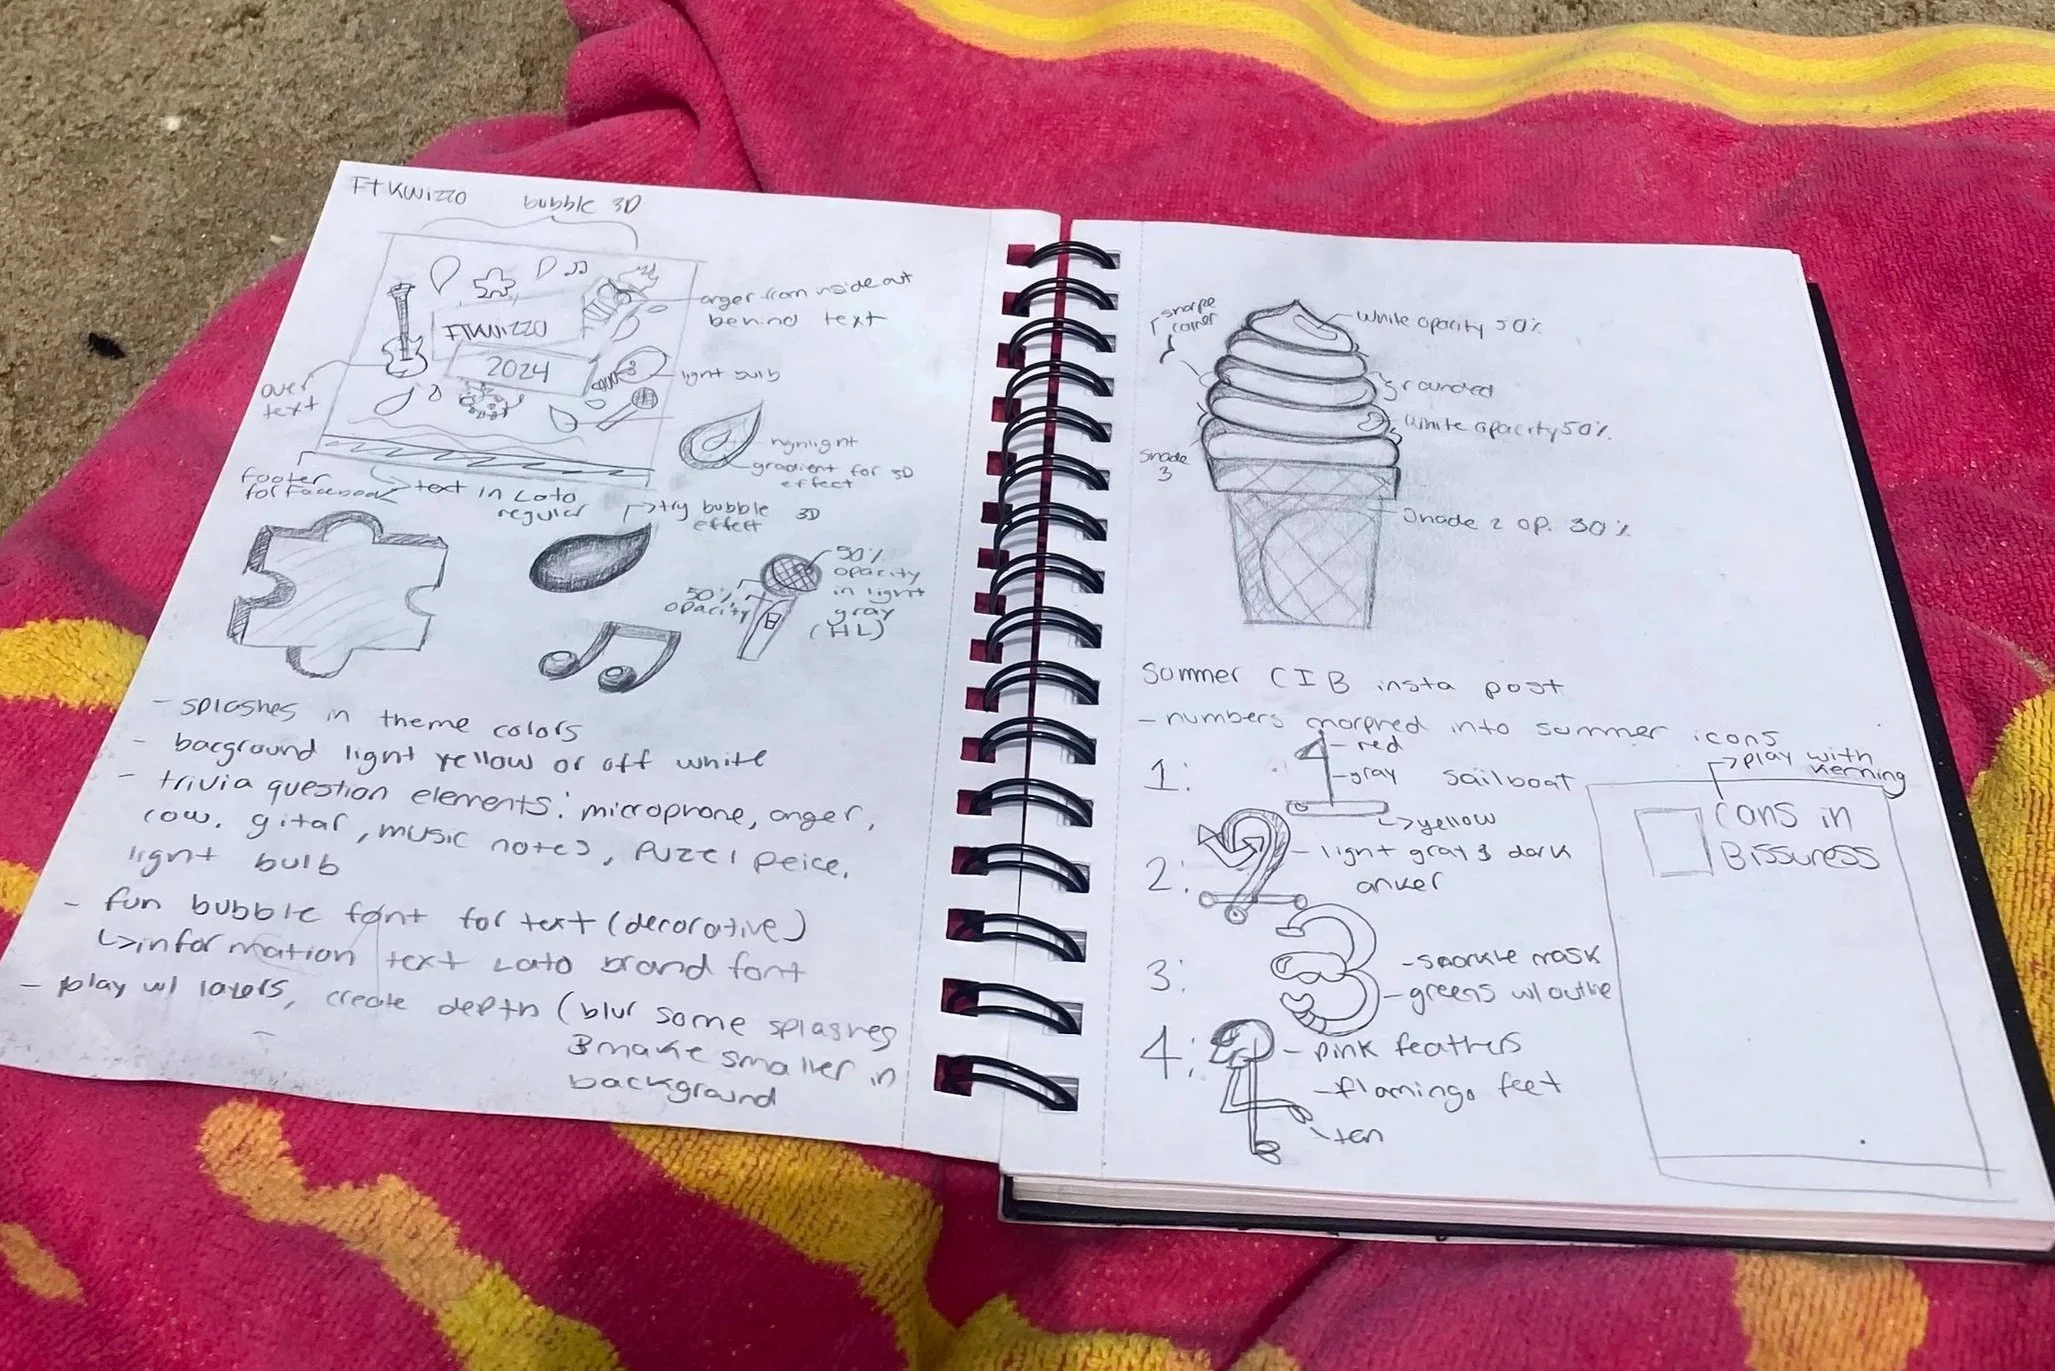 FTKWIZZO
bubble 3D
FTKWIZZO
2024
anger from inside out
behind text
light bulb
over
text
highlight
gradient for 3D
effect
footer
for Facebook
text in Lato
regular
try bubble 3D
effect
50%
opacity
in light
gray
(HL)
50%
opacity
- splashes in theme colors
- bacground light yellow or off white
- trivia question elements: microphone, anger,
cow, gitar, music notes, puzel peice,
light bulb
- fun bubble font for text (decorative)
information text Lato brand font
- play w/ layers, create depth (blur some splashes
& make smaller in
background
sharpe
corner
white opacity 50%
rounded
white opacity 50%
shade
3
shade 2 op. 30%
Summer CIB insta post
- numbers morphed into summer icons
1:
- red
- gray
sailboat
yellow
2:
- light gray & dark
anker
3:
- snorkle mask
- greens w/ outline
4:
- pink feathers
- flamingo feet
- tan
play with
kerning
cans in
Bissuness